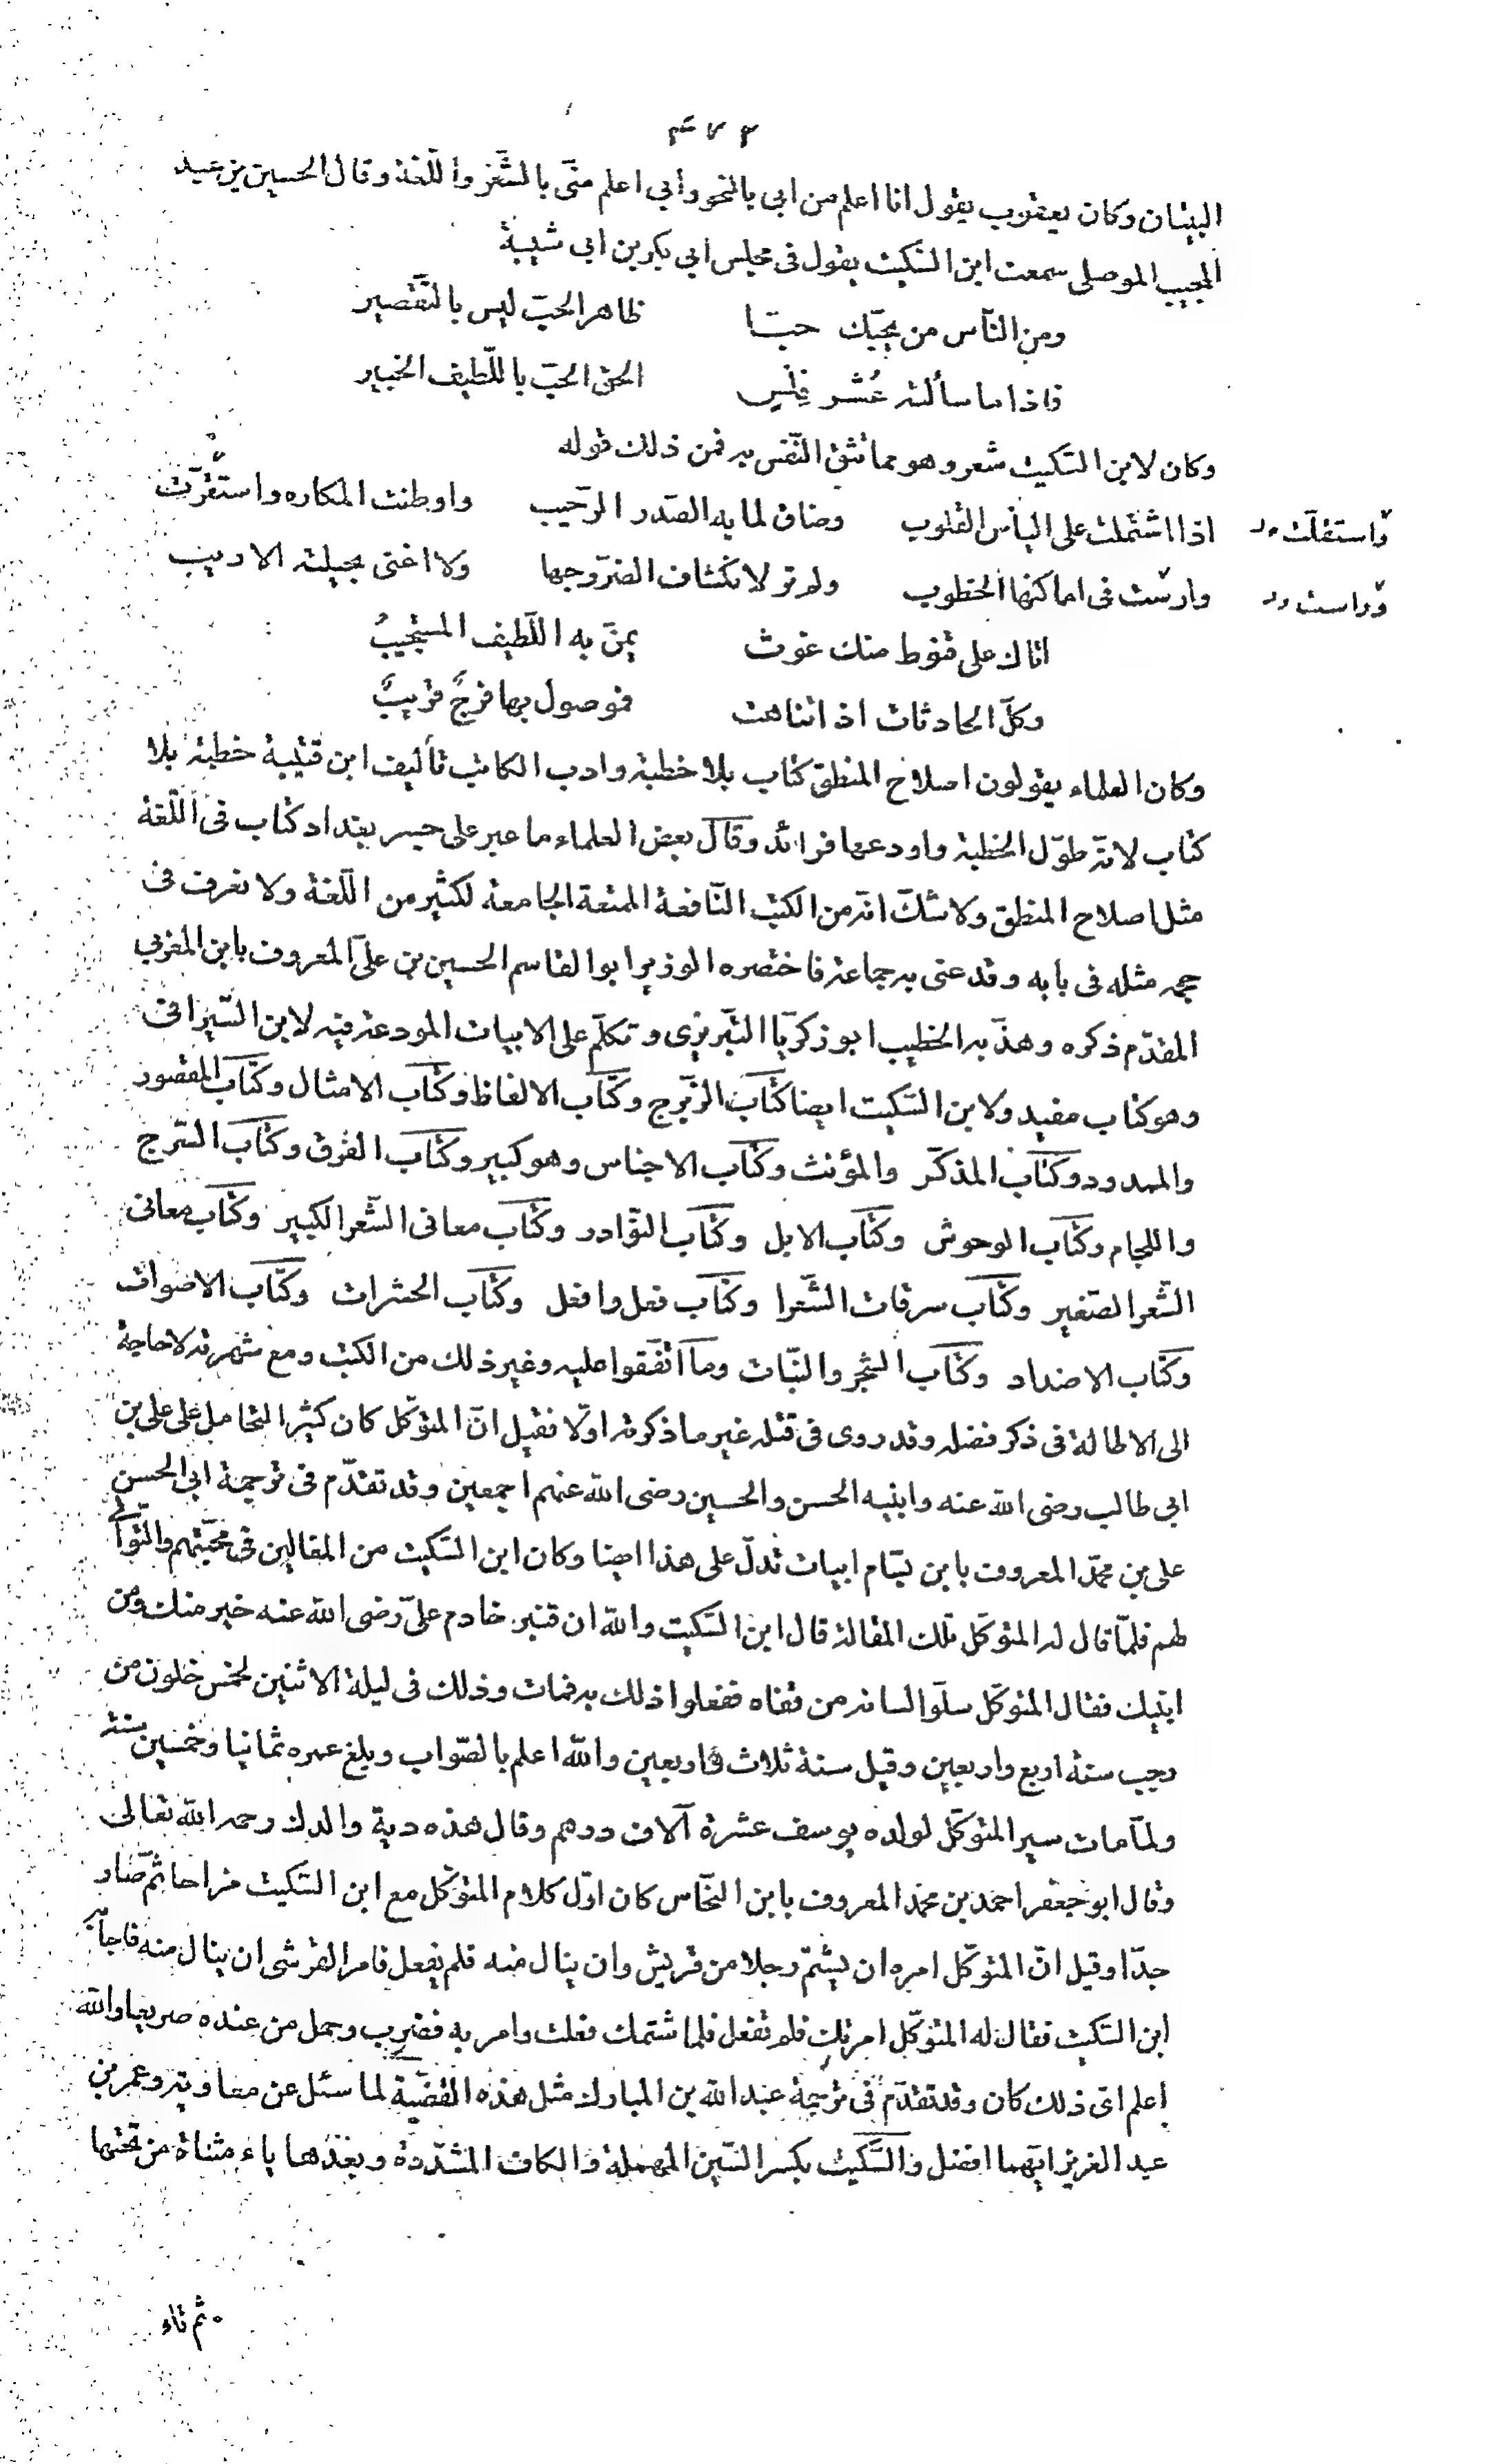 ٣٧٢
البيان وكان يعقوب يقول انا اعلم من ابي بالنحو وأبي اعلم منّى بالشّعر واللّغة وقال الحسين بن عبد
المجيب الموصلى سمعت ابن السّكيت يقول فى مجلس ابي بكر بن ابى شيبة
ومن النّاس من يحبّك حبّا ظاهر الحبّ ليس بالتّقصير
فاذا ما سألته عُشر فِلْسٍ الحق الحبّ باللّطيف الخبير
وكان لابن السّكيت شعر وهو مما تثق النّفس به فمن ذلك قوله
اذا اشتملت على اليأس القلوب وضاق لما به الصّدر الرّحيب واوطنت المكاره واستقرّت
واستقلّت
وارسّت فى اماكنها الخطوب ولم تر لانكشاف الضرّ وجها ولا اغنى بحيلته الاديب
وراست
اتاك على قنوط منك غوث يمنّ به اللّطيف المستجيبُ
وكلّ الحادثات اذا تناهت فموصول بها فرجٌ قريبٌ
وكان العلماء يقولون اصلاح المنطق كتاب بلا خطبة وادب الكاتب تأليف ابن قتيبة خطبة بلا
كتاب لانّه طوّل الخطبة واودعها فرائد وقال بعض العلماء ما عبر على جسر بغداد كتاب فى اللّغة
مثل اصلاح المنطق ولا شكّ انّه من الكتب النّافعة الممتعة الجامعة لكثير من اللّغة ولا نعرف فى
حجمه مثله فى بابه وقد عنى به جماعة فاختصره الوزير ابو القاسم الحسين بن علىّ المعروف بابن المغربى
المقدّم ذكره وهذّبه الخطيب ابو زكريّا التّبريزى وتكلّم على الابيات المودعة فيه لابن السّيرافى
وهو كتاب مفيد ولابن السّكيت ايضا كتاب الزّبرج وكتاب الالفاظ وكتاب الامثال وكتاب المقصور
والممدود وكتاب المذكّر والمؤنث وكتاب الاجناس وهو كبير وكتاب الفرق وكتاب السّرج
واللجام وكتاب الوحوش وكتاب الابل وكتاب النّوادر وكتاب معانى الشّعر الكبير وكتاب معانى
الشّعر الصّغير وكتاب سرقات الشّعرا وكتاب فعل وافعل وكتاب الحشرات وكتاب الاصوات
وكتاب الاضداد وكتاب الشجر والنّبات وما اتّفقوا عليه وغير ذلك من الكتب ومع شهرته لا حاجة
الى الاطالة فى ذكر فضله وقد روى فى قتله غير ما ذكرته اوّلا فقيل انّ المتوكّل كان كثير التحامل على على بن
ابي طالب رضى الله عنه وابنيه الحسن والحسين رضى الله عنهم اجمعين وقد تقدّم فى ترجمة ابى الحسن
على بن محمّد المعروف بابن بسّام ابيات تدلّ على هذا ايضا وكان ابن السّكيت من المغالين فى محبّتهم والتّوالى
لهم فلمّا قال له المتوكّل تلك المقالة قال ابن السّكيت والله ان قنبر خادم علىّ رضى الله عنه خير منك ومن
ابنيك فقال المتوكّل سلّوا لسانه من قفاه ففعلوا ذلك به فمات وذلك فى ليلة الاثنين لخمس خلون من
رجب سنة اربع واربعين وقيل سنة ثلاث واربعين والله اعلم بالصّواب وبلغ عمره ثمانيا وخمسين سنة
ولمّا مات سير المتوكّل لولده يوسف عشرة آلاف درهم وقال هذه دية والدك رحمه الله تعالى
وقال ابو جعفر احمد بن محمد المعروف بابن النحّاس كان اوّل كلام المتوكّل مع ابن السّكيت مزاحا ثمّ صار
جدّا وقيل انّ المتوكّل امره ان يشتم رجلا من قريش وان ينال منه فلم يفعل فامر القرشى ان ينال منه فاجابه
ابن السّكيت فقال له المتوكّل امرتك فلم تفعل فلما شتمك فعلت وامر به فضرب وحمل من عنده صريعا والله
اعلم اىّ ذلك كان وقد تقدّم فى ترجمة عبد الله بن المبارك مثل هذه القضيّة لما سئل عن معاوية وعمر بن
عبد العزيز ايّهما افضل والسِّكّيت بكسر السّين المهملة والكاف المشدّدة وبعدها ياء مثناة من تحتها
ثم تاء